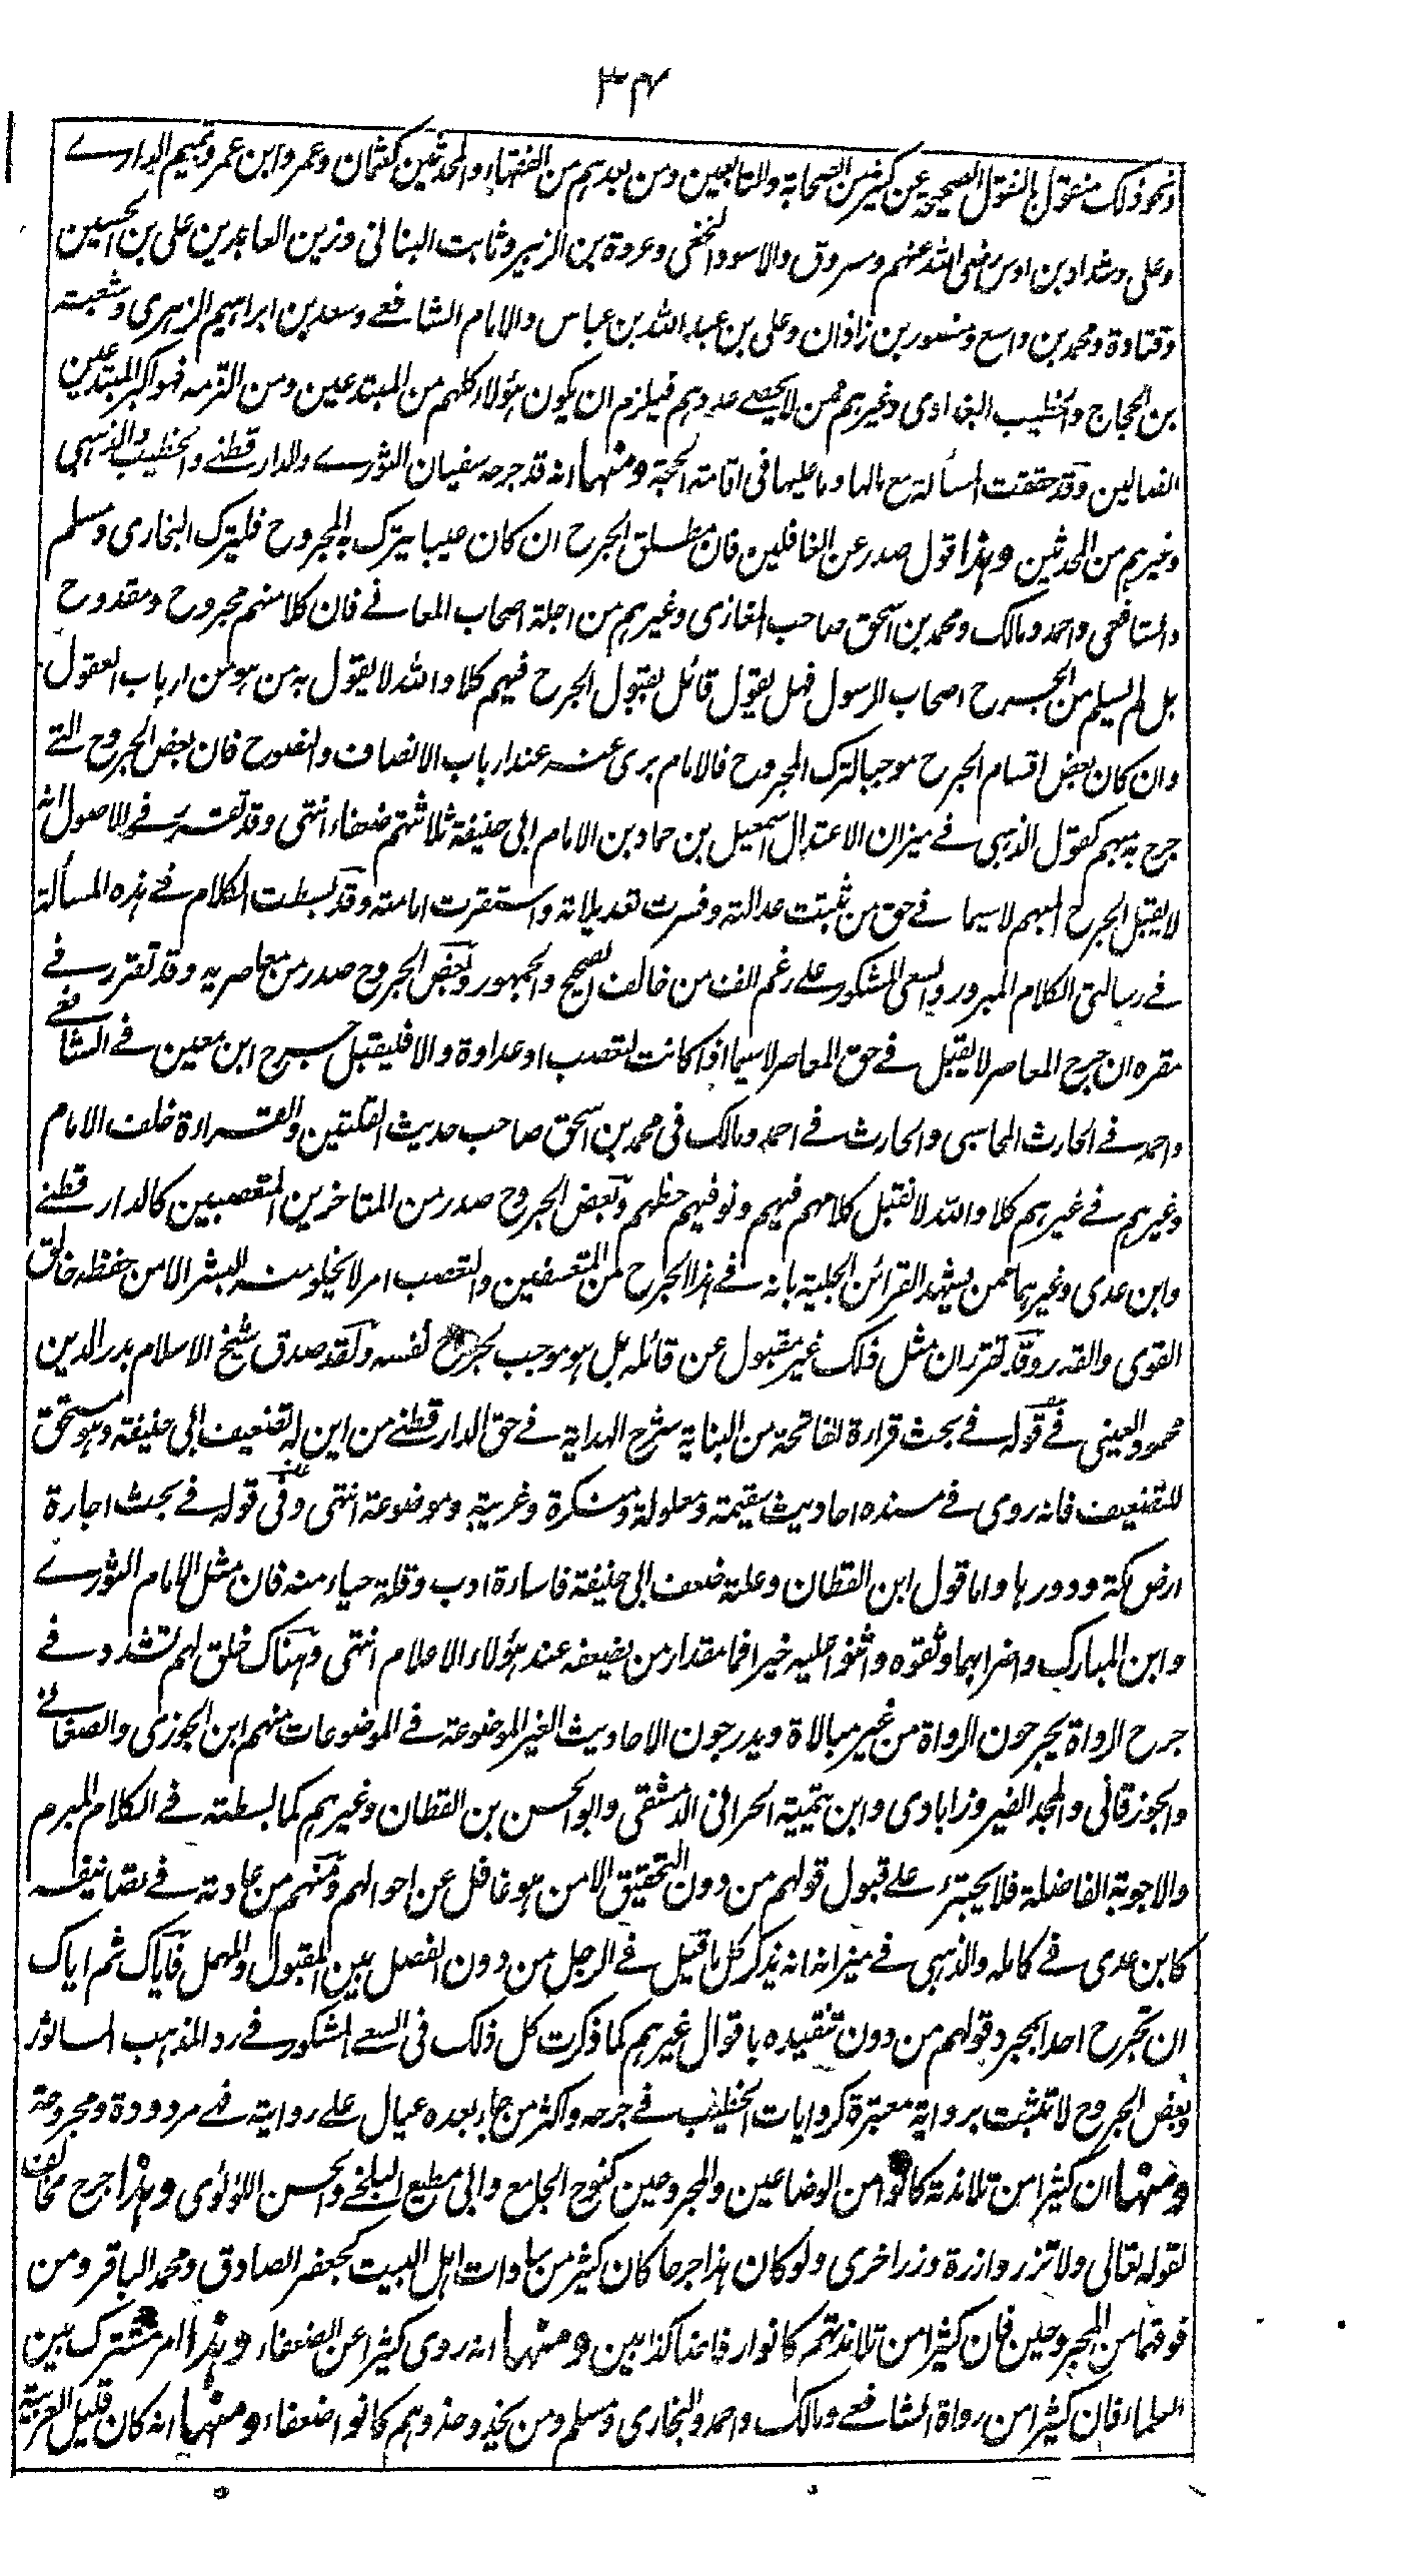 ٣٤
ونحو ذلك منقول بالنقول الصحيحة عن كثير من الصحابة والتابعين ومن بعدهم من الفقهاء والمحدثين كعثمان وعمر وابن عمر وتميم الدارے
وعلى وشداد بن اوس رضى الله عنهم ومسروق والاسود النخعى وعروة بن الزبير وثابت البنانى وزين العابدين على بن الحسين
وقتادة ومحمد بن واسع ومنصور بن زاذان وعلى بن عبد الله بن عباس والامام الشافعے وسعد بن ابراهيم الزهرى وشعبة
بن الحجاج والخطيب البغدادى وغيرهم ممن لا يحصے عددهم فيلزم ان يكون هؤلاء كلهم من المبتدعين ومن التزمه فهو اكبر المبتدعين
الضالين وقد حققت المسألة مع مالها وما عليها فى اقامة الحجة ومنها انه قد جرحه سفيان الثورے والدارقطنے والخطيب والذهبى
وغيرهم من المحدثين وهذا قول صدر عن الغافلين فان مطلق الجرح ان كان عيبا يترك به المجروح فليترك البخارى ومسلم
والشافعى واحمد ومالك ومحمد بن اسحق صاحب المغازى وغيرهم من اجلة اصحاب المعانے فان كلا منهم مجروح ومقدوح
بل لم يسلم من الجرح اصحاب الرسول فهل يقول قائل بقبول الجرح فيهم كلا والله لا يقول به من هو من ارباب العقول
وان كان بعض اقسام الجرح موجبا لترك المجروح فالامام برى عنه عند ارباب الانصاف والنصوح فان بعض الجروح التے
جرح به مبهم كقول الذهبى فے ميزان الاعتدال اسمعيل بن حماد بن الامام ابى حنيفة ثلاثتهم ضعفاء انتهى وقد تقرر فے الاصول انه
لا يقبل الجرح المبهم لا سيما فے حق من ثبتت عدالته وفسرت تعديلاته واستقرت امامته وقد بسطت الكلام فے هذه المسألة
فے رسالتى الكلام المبرور والسعى المشكور علے رغم انف من خالف الصحيح والجمهور وبعض الجروح صدر من معاصريه وقد تقرر فے
مقره ان جرح المعاصر لا يقبل فے حق المعاصر لا سيما اذا كانت لتعصب او عداوة والا فليقبل جرح ابن معين فے الشافعے
واحمد فے الحارث المحاسبى والحارث فے احمد ومالك فى محمد بن اسحق صاحب حديث القلتين والقراءة خلف الامام
وغيرهم فے غيرهم كلا والله لا نقبل كلامهم فيهم ونوفيهم حظهم وبعض الجروح صدر من المتاخرين المتعصبين كالدارقطنے
وابن عدى وغيرهما ممن يشهد القرائن الجلية بانه فے هذا الجرح من المتعسفين والتعصب امر لا يخلو منه البشر الا من حفظه خالق
القوى والقدر وقد تقرر ان مثل ذلك غير مقبول عن قائله بل هو موجب لجرح نفسه ولقد صدق شيخ الاسلام بدر الدين
محمود العينى فے قوله فے بحث قراءة الفاتحة من البناية شرح الهداية فے حق الدارقطنے من اين له تضعيف ابى حنيفة وهو مستحق
للتضعيف فانه روى فے مسنده احاديث سقيمة ومعلولة ومنكرة وغريبة وموضوعة انتهى وفى قوله فے بحث اجارة
ارض مكة ودورها واما قول ابن القطان وعلته ضعف ابى حنيفة فاساءة ادب وقلة حياء منه فان مثل الامام الثورے
وابن المبارك واضرابهما وثقوه واثنوا عليه خيرا فما مقدار من يضعفه عند هؤلاء الاعلام انتهى وهناك خلق لهم تشدد فے
جرح الرواة يجرحون الرواة من غير مبالاة ويدرجون الاحاديث الغير الموضوعة فے الموضوعات منهم ابن الجوزى والصغانے
والجوزقانى والمجد الفيروزابادى وابن تيمية الحرانى الدمشقى وابو الحسن بن القطان وغيرهم كما بسطته فے الكلام المبرم
والاجوبة الفاضلة فلا يجترئ علے قبول قولهم من دون التحقيق الا من هو غافل عن احوالهم ومنهم من عادته فے تصانيفه
كابن عدى فے كامله والذهبى فے ميزانه انه يذكر كل ما قيل فے الرجل من دون الفصل بين المقبول والمهمل فاياك ثم اياك
ان تجرح احدا بمجرد قولهم من دون تنقيده باقوال غيرهم كما ذكرت كل ذلك فى السعے المشكور فے رد المذهب الماثور
وبعض الجروح لا تثبت برواية معتبرة كروايات الخطيب فے جرحه واكثر من جاء بعده عيال علے روايته فهے مردودة ومجروحة
ومنها ان كثيرا من تلامذته كانوا من الوضاعين والمجروحين كنوح الجامع وابى مطيع البلخے والحسن اللؤلؤى وهذا جرح مخالف
لقوله تعالى ولا تزر وازرة وزر اخرى ولو كان هذا جرحا كان كثير من سادات اهل البيت كجعفر الصادق ومحمد الباقر ومن
فوقهما من المجروحين فان كثيرا من تلامذتهم كانوا رفاضا كذابين ومنها انه روى كثيرا عن الضعفاء وهذا امر مشترك بين
العلماء فان كثيرا من رواة الشافعے ومالك واحمد والبخارى ومسلم ومن يحذو حذوهم كانوا ضعفاء ومنها انه كان قليل العربية